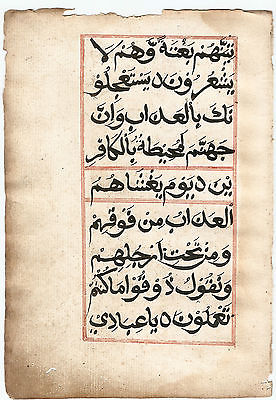 تينهم بغتة وهم لا
يشعرون ه يستعجلو
نك بالعذاب وان
جهنم لمحيطة بالكافر
ين ه يوم يغشاهم
العذاب من فوقهم
ومن تحت ارجلهم
ونقول ذوقوا ما كنتم
تعملون ه يا عبادي